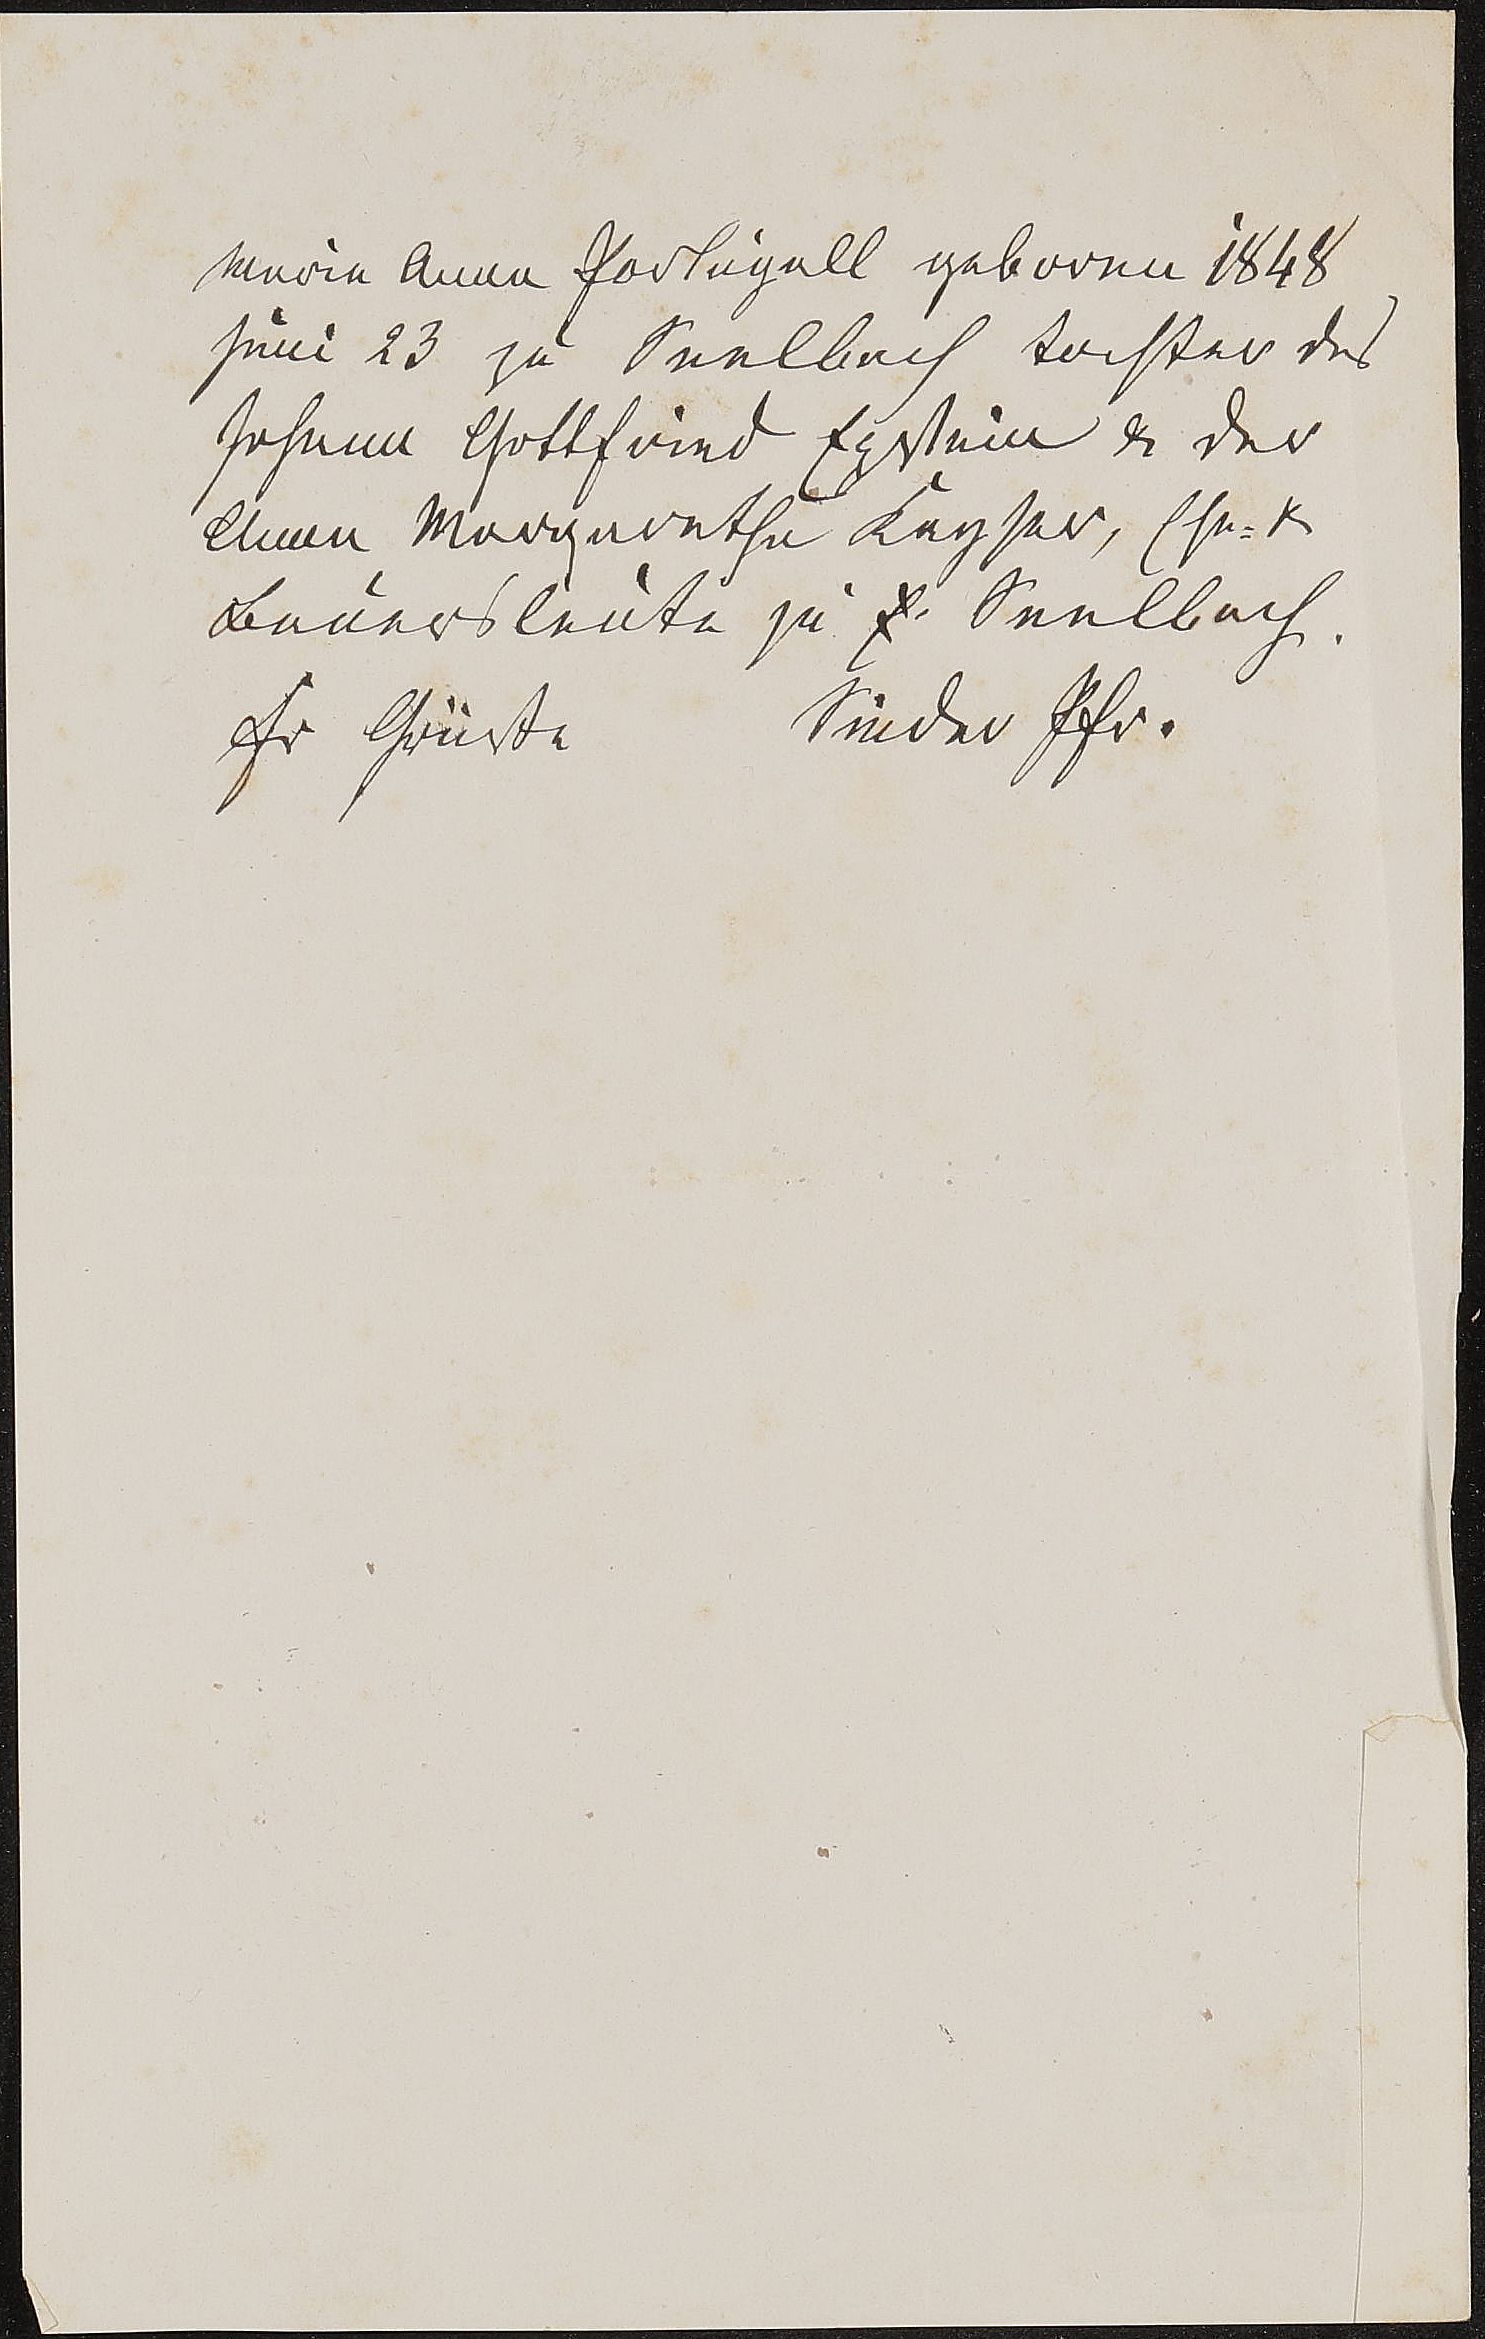 Maria Anna Portugall geboren 1848
Juni 23 zu Seelbach tochter des
Johann Gottfried Epstein & der
Anna Margaretha Kayser, Ehe- &
Bauersleute zu Seelbach.
Fr Grüße Pfr.